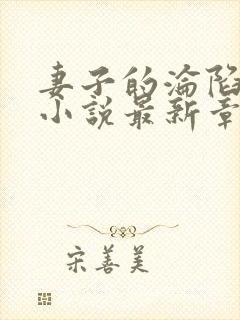 妻子的淪陷
小說最新章
宋善美